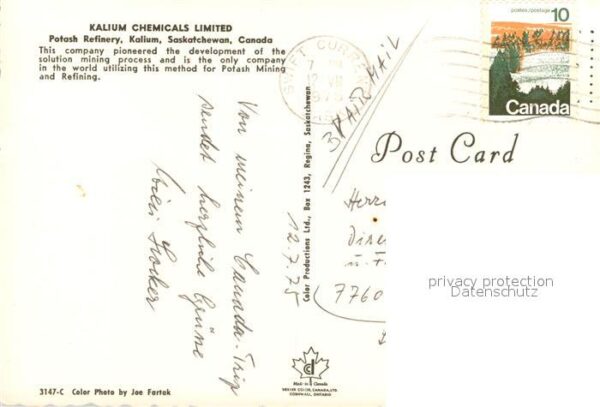 KALIUM CHEMICALS LIMITED
Potash Refinery, Kalium, Saskatchewan, Canada
This company pioneered the development of the
solution mining process and is the only company
in the world utilizing this method for Potash Mining
and Refining.
postes/postage 10
Canada
SWIFT CURRENT
AIR MAIL
Post Card
Von meinem Canada-Trip
sendet herzliche Grüsse
12.7.75
Color Productions Ltd., Box 1243, Regina, Saskatchewan
Herrn
u.
7760
privacy protection
Datenschutz
Made in Canada
CORNWALL, ONTARIO
3147-C Color Photo by Joe Fartek